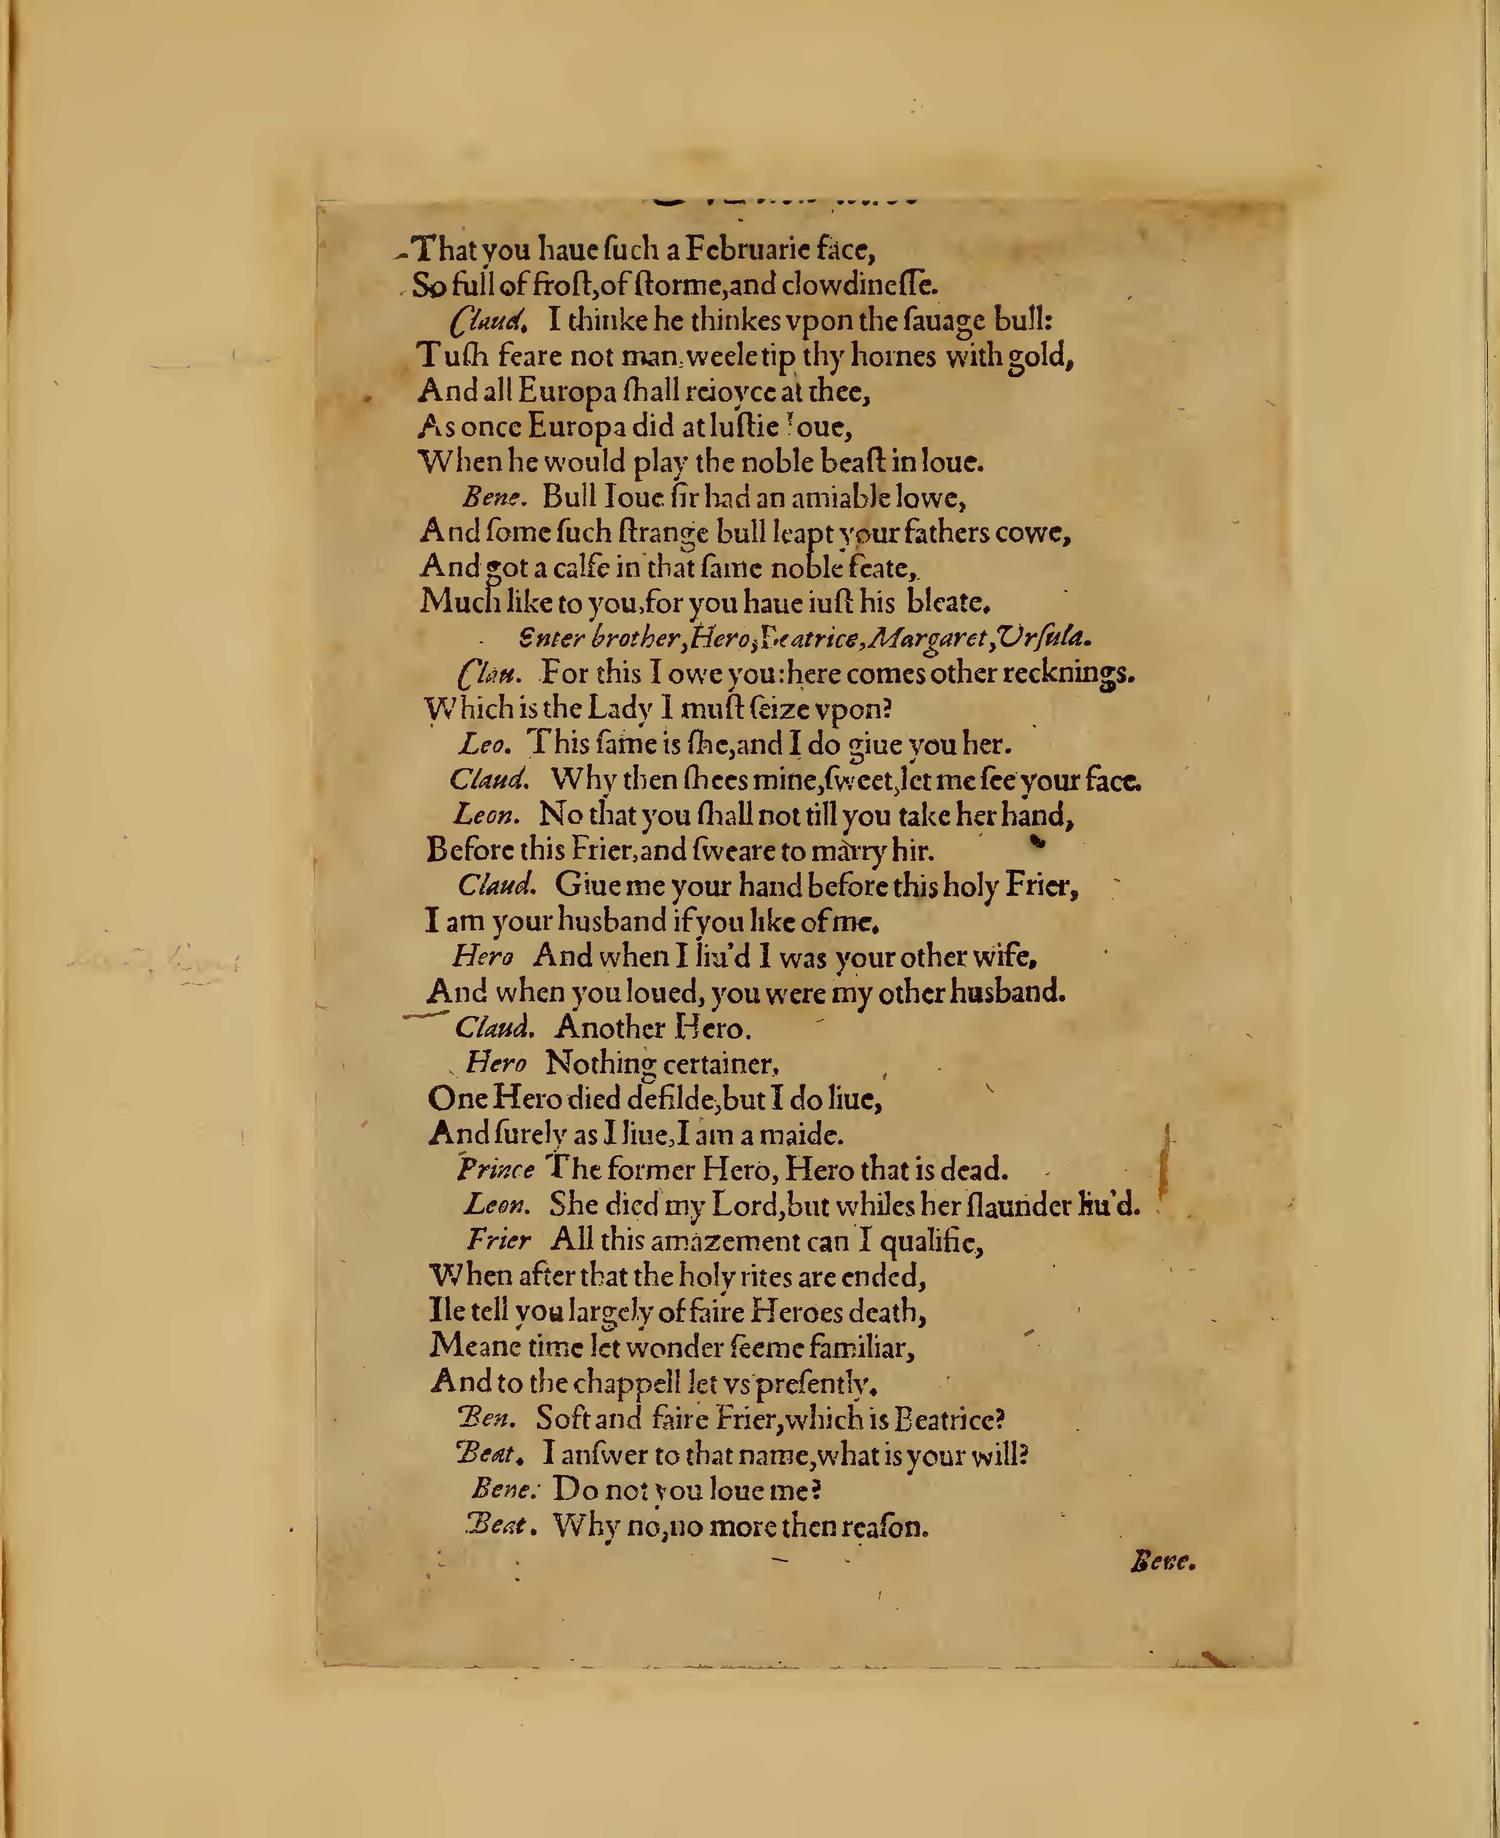 That you haue ſuch a Februarie face,
So full of froſt, of ſtorme, and clowdineſſe.
Claud. I thinke he thinkes vpon the ſauage bull:
Tuſh feare not man, weele tip thy hornes with gold,
And all Europa ſhall reioyce at thee,
As once Europa did at luſtie Ioue,
When he would play the noble beaſt in loue.
Bene. Bull Ioue ſir had an amiable lowe,
And ſome ſuch ſtrange bull leapt your fathers cowe,
And got a calfe in that ſame noble feate,
Much like to you, for you haue iuſt his bleate.
Enter brother, Hero, Beatrice, Margaret, Vrſula.
Clau. For this I owe you: here comes other recknings.
Which is the Lady I muſt ſeize vpon?
Leo. This ſame is ſhe, and I do giue you her.
Claud. Why then ſhees mine, ſweet, let me ſee your face.
Leon. No that you ſhall not till you take her hand,
Before this Frier, and ſweare to marry hir.
Claud. Giue me your hand before this holy Frier,
I am your husband if you like of me.
Hero And when I liu'd I was your other wife,
And when you loued, you were my other husband.
Claud. Another Hero.
Hero Nothing certainer,
One Hero died defilde, but I do liue,
And ſurely as I liue, I am a maide.
Prince The former Hero, Hero that is dead.
Leon. She died my Lord, but whiles her ſlaunder liu'd.
Frier All this amazement can I qualifie,
When after that the holy rites are ended,
Ile tell you largely of faire Heroes death,
Meane time let wonder ſeeme familiar,
And to the chappell let vs preſently.
Ben. Soft and faire Frier, which is Beatrice?
Beat. I anſwer to that name, what is your will?
Bene. Do not you loue me?
Beat. Why no, no more then reaſon.
Bene.